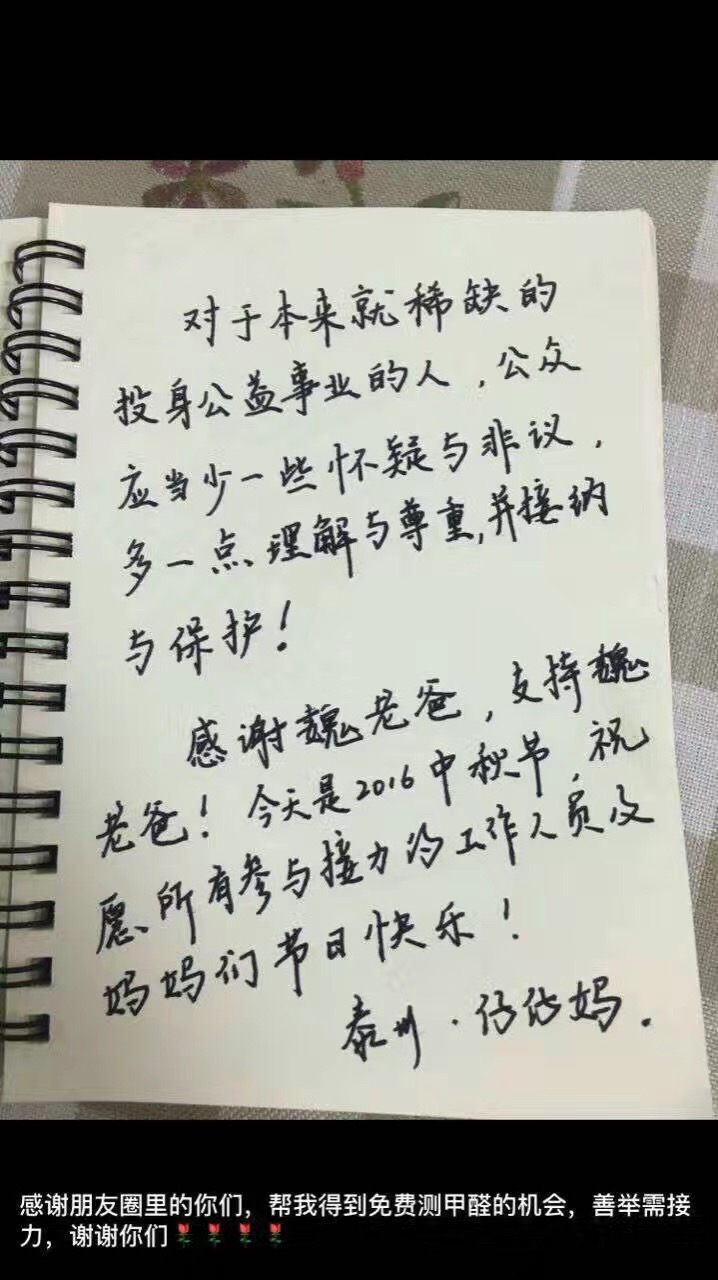 对于本来就稀缺的
投身公益事业的人，公众
应当少一些怀疑与非议，
多一点理解与尊重,并接纳
与保护！
感谢魏老爸，支持魏
老爸！今天是2016中秋节，祝
愿所有参与接力的工作人员及
妈妈们节日快乐！
泰州·仔仔妈.
感谢朋友圈里的你们，帮我得到免费测甲醛的机会，善举需接
力，谢谢你们🌹🌹🌹🌹